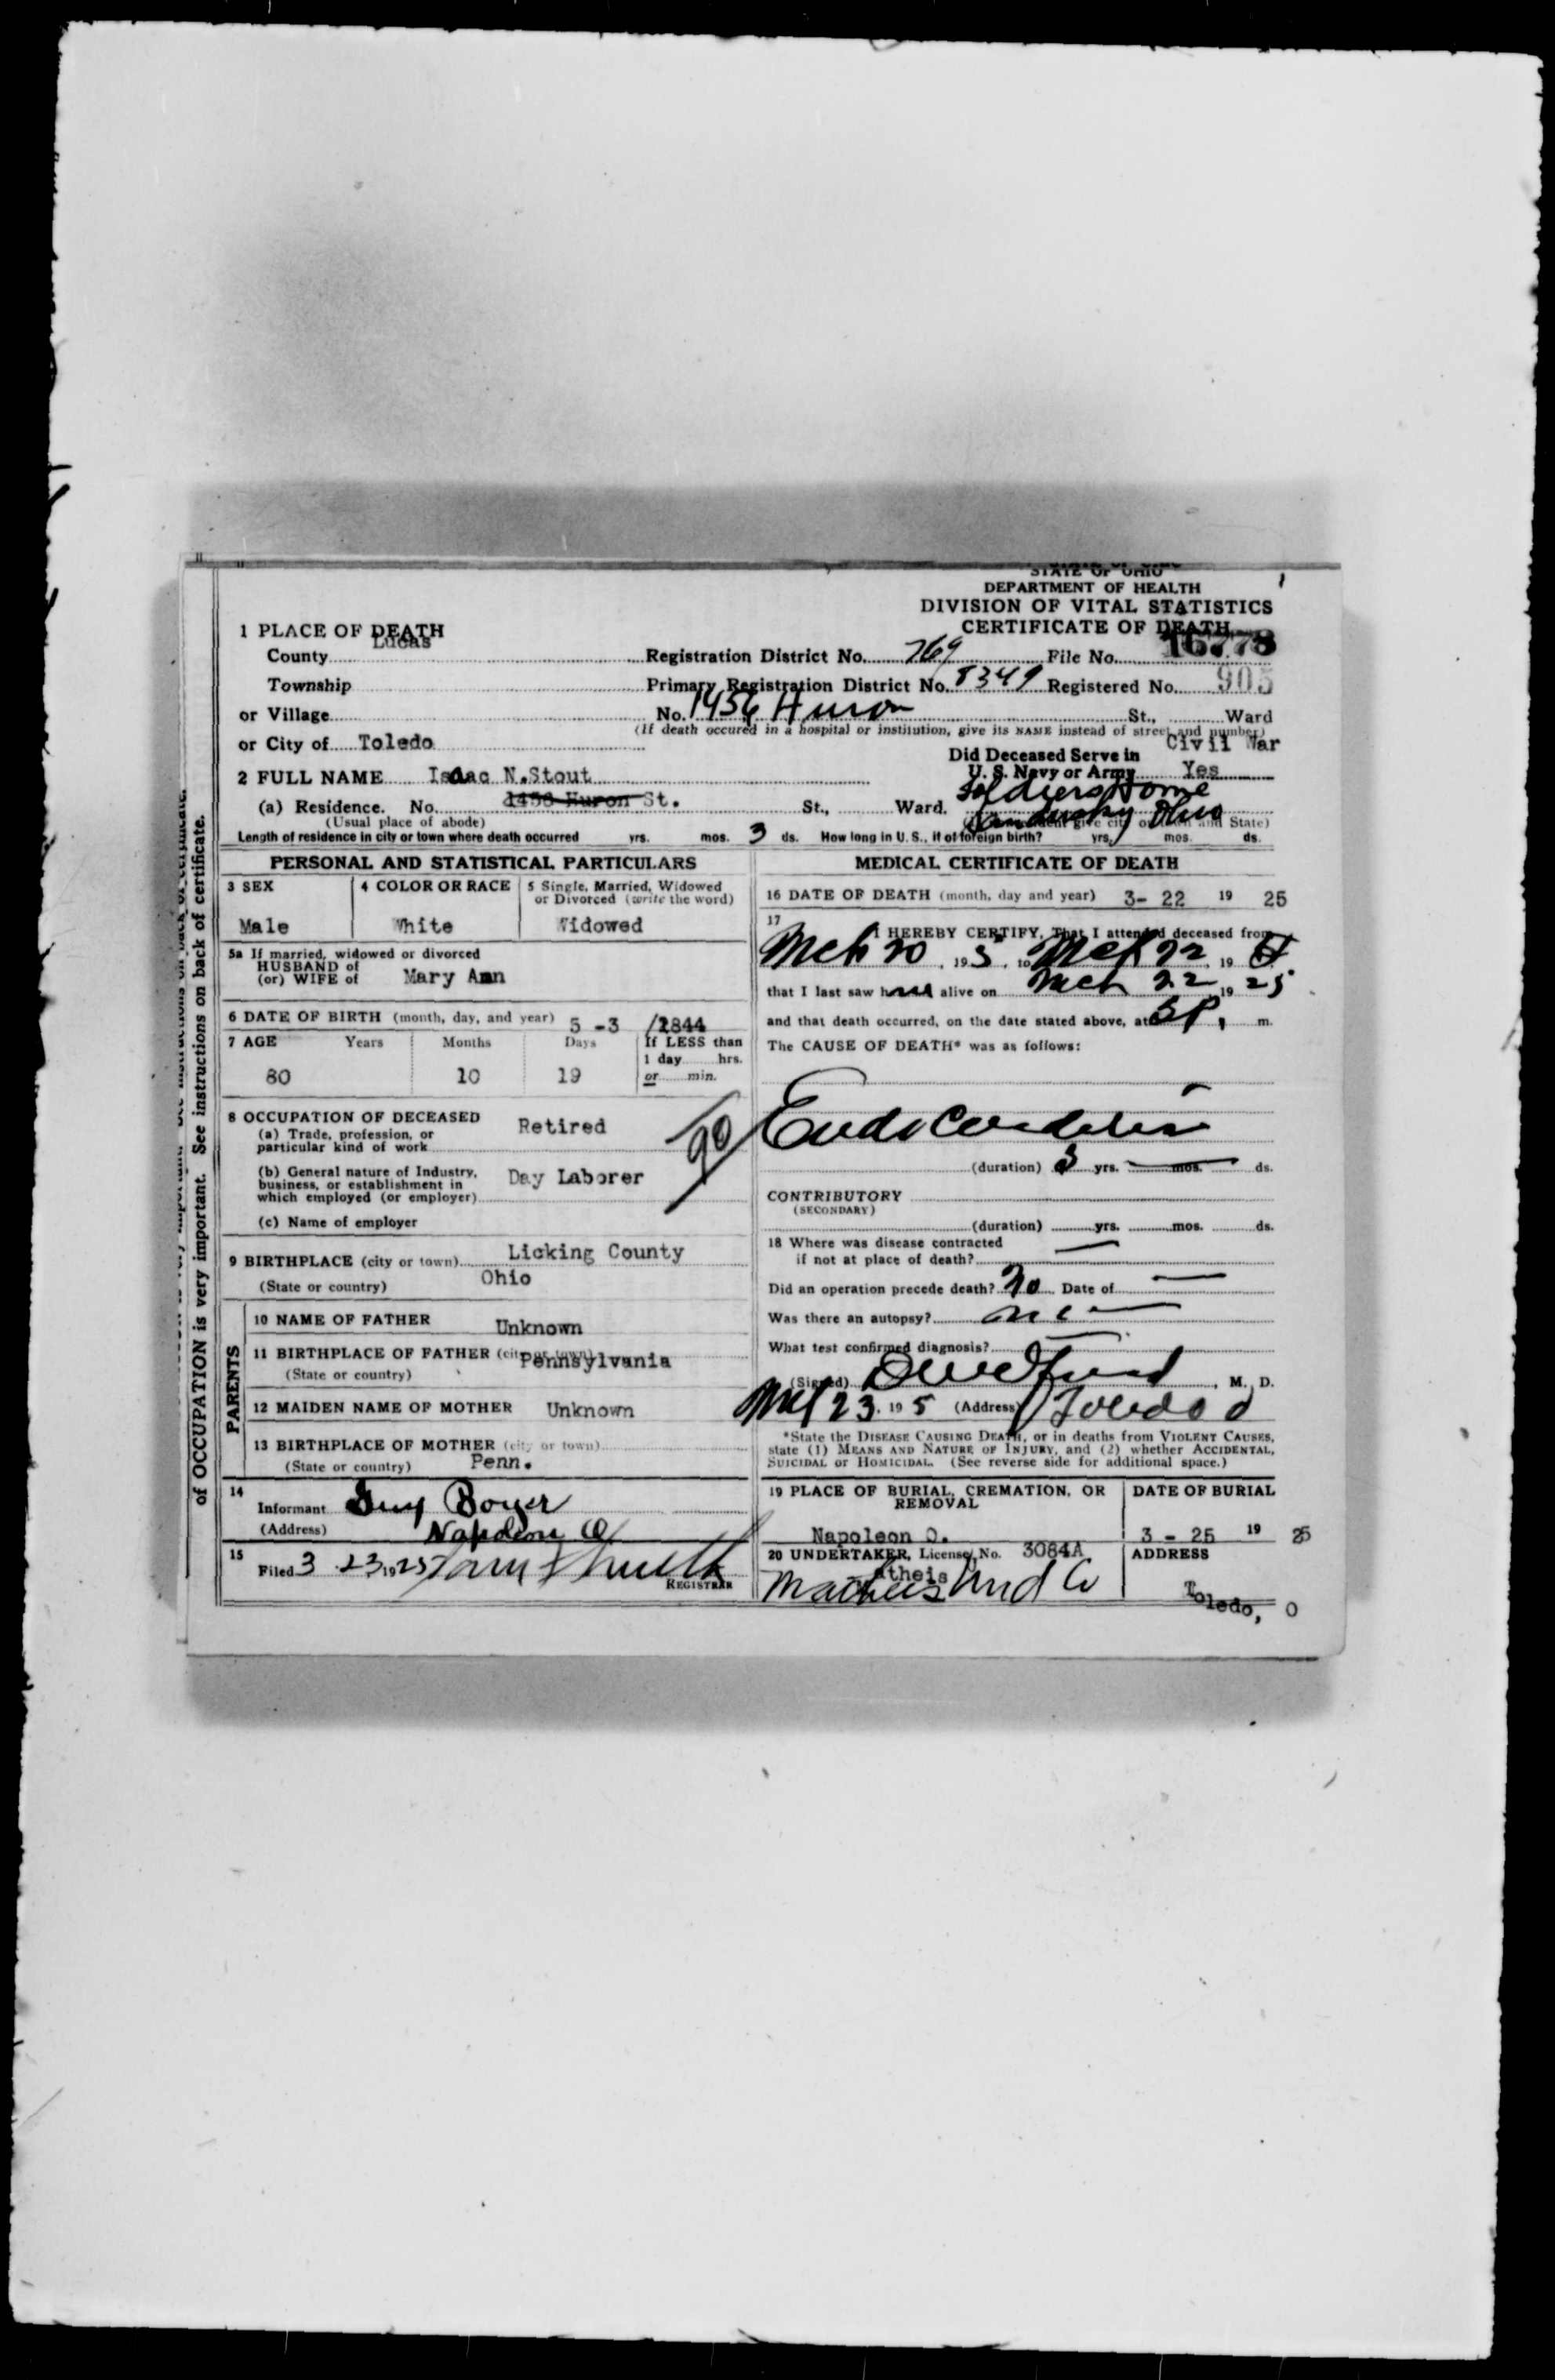 STATE OF OHIO
DEPARTMENT OF HEALTH
DIVISION OF VITAL STATISTICS
CERTIFICATE OF DEATH
1 PLACE OF DEATH
County Lucas Registration District No. 769 File No. 16778
Township Primary Registration District No. 8349 Registered No. 905
or Village No. 1456 Huron St., Ward
(If death occured in a hospital or institution, give its NAME instead of street and number)
or City of Toledo
Did Deceased Serve in Civil War
2 FULL NAME Isaac N. Stout U. S. Navy or Army Yes
(a) Residence. No. 1456 Huron St. St., Ward. Soldiers Home
Sandusky Ohio
(Usual place of abode) give city or and State)
Length of residence in city or town where death occurred yrs. mos. 3 ds. How long in U. S., if of foreign birth? yrs. mos. ds.
PERSONAL AND STATISTICAL PARTICULARS
3 SEX
Male
4 COLOR OR RACE
White
5 Single, Married, Widowed
or Divorced (write the word)
Widowed
5a If married, widowed or divorced
HUSBAND of
(or) WIFE of Mary Ann
6 DATE OF BIRTH (month, day, and year) 5 -3 /1844
7 AGE Years Months Days If LESS than
1 day hrs.
80 10 19 or min.
8 OCCUPATION OF DECEASED
(a) Trade, profession, or
particular kind of work Retired
90
(b) General nature of Industry,
business, or establishment in
which employed (or employer) Day Laborer
(c) Name of employer
9 BIRTHPLACE (city or town) Licking County
(State or country) Ohio
PARENTS
10 NAME OF FATHER Unknown
11 BIRTHPLACE OF FATHER (city or town) Pennsylvania
(State or country)
12 MAIDEN NAME OF MOTHER Unknown
13 BIRTHPLACE OF MOTHER (city or town)
(State or country) Penn.
14
Informant Guy Boyer
(Address) Napoleon O
15
Filed 3 23 1925
REGISTRAR
MEDICAL CERTIFICATE OF DEATH
16 DATE OF DEATH (month, day and year) 3- 22 19 25
17
I HEREBY CERTIFY, That I attended deceased from
Mch 20, 19 5, to Mch 22, 19
that I last saw h alive on Mch 22, 19 25
and that death occurred, on the date stated above, at m.
The CAUSE OF DEATH* was as follows:
Endocarditis
(duration) 3 yrs. mos. ds.
CONTRIBUTORY
(SECONDARY)
(duration) yrs. mos. ds.
18 Where was disease contracted
if not at place of death?
Did an operation precede death? No Date of
Was there an autopsy? no
What test confirmed diagnosis?
(Signed) , M. D.
Mch 23, 19 5 (Address) Toledo O
*State the DISEASE CAUSING DEATH, or in deaths from VIOLENT CAUSES,
state (1) MEANS AND NATURE OF INJURY, and (2) whether ACCIDENTAL,
SUICIDAL or HOMICIDAL. (See reverse side for additional space.)
19 PLACE OF BURIAL, CREMATION, OR
REMOVAL
Napoleon O.
DATE OF BURIAL
3 - 25 19 25
20 UNDERTAKER, License No. 3084A
Matheis Und Co
ADDRESS
Toledo, O
of OCCUPATION is very important. See instructions on back of certificate.